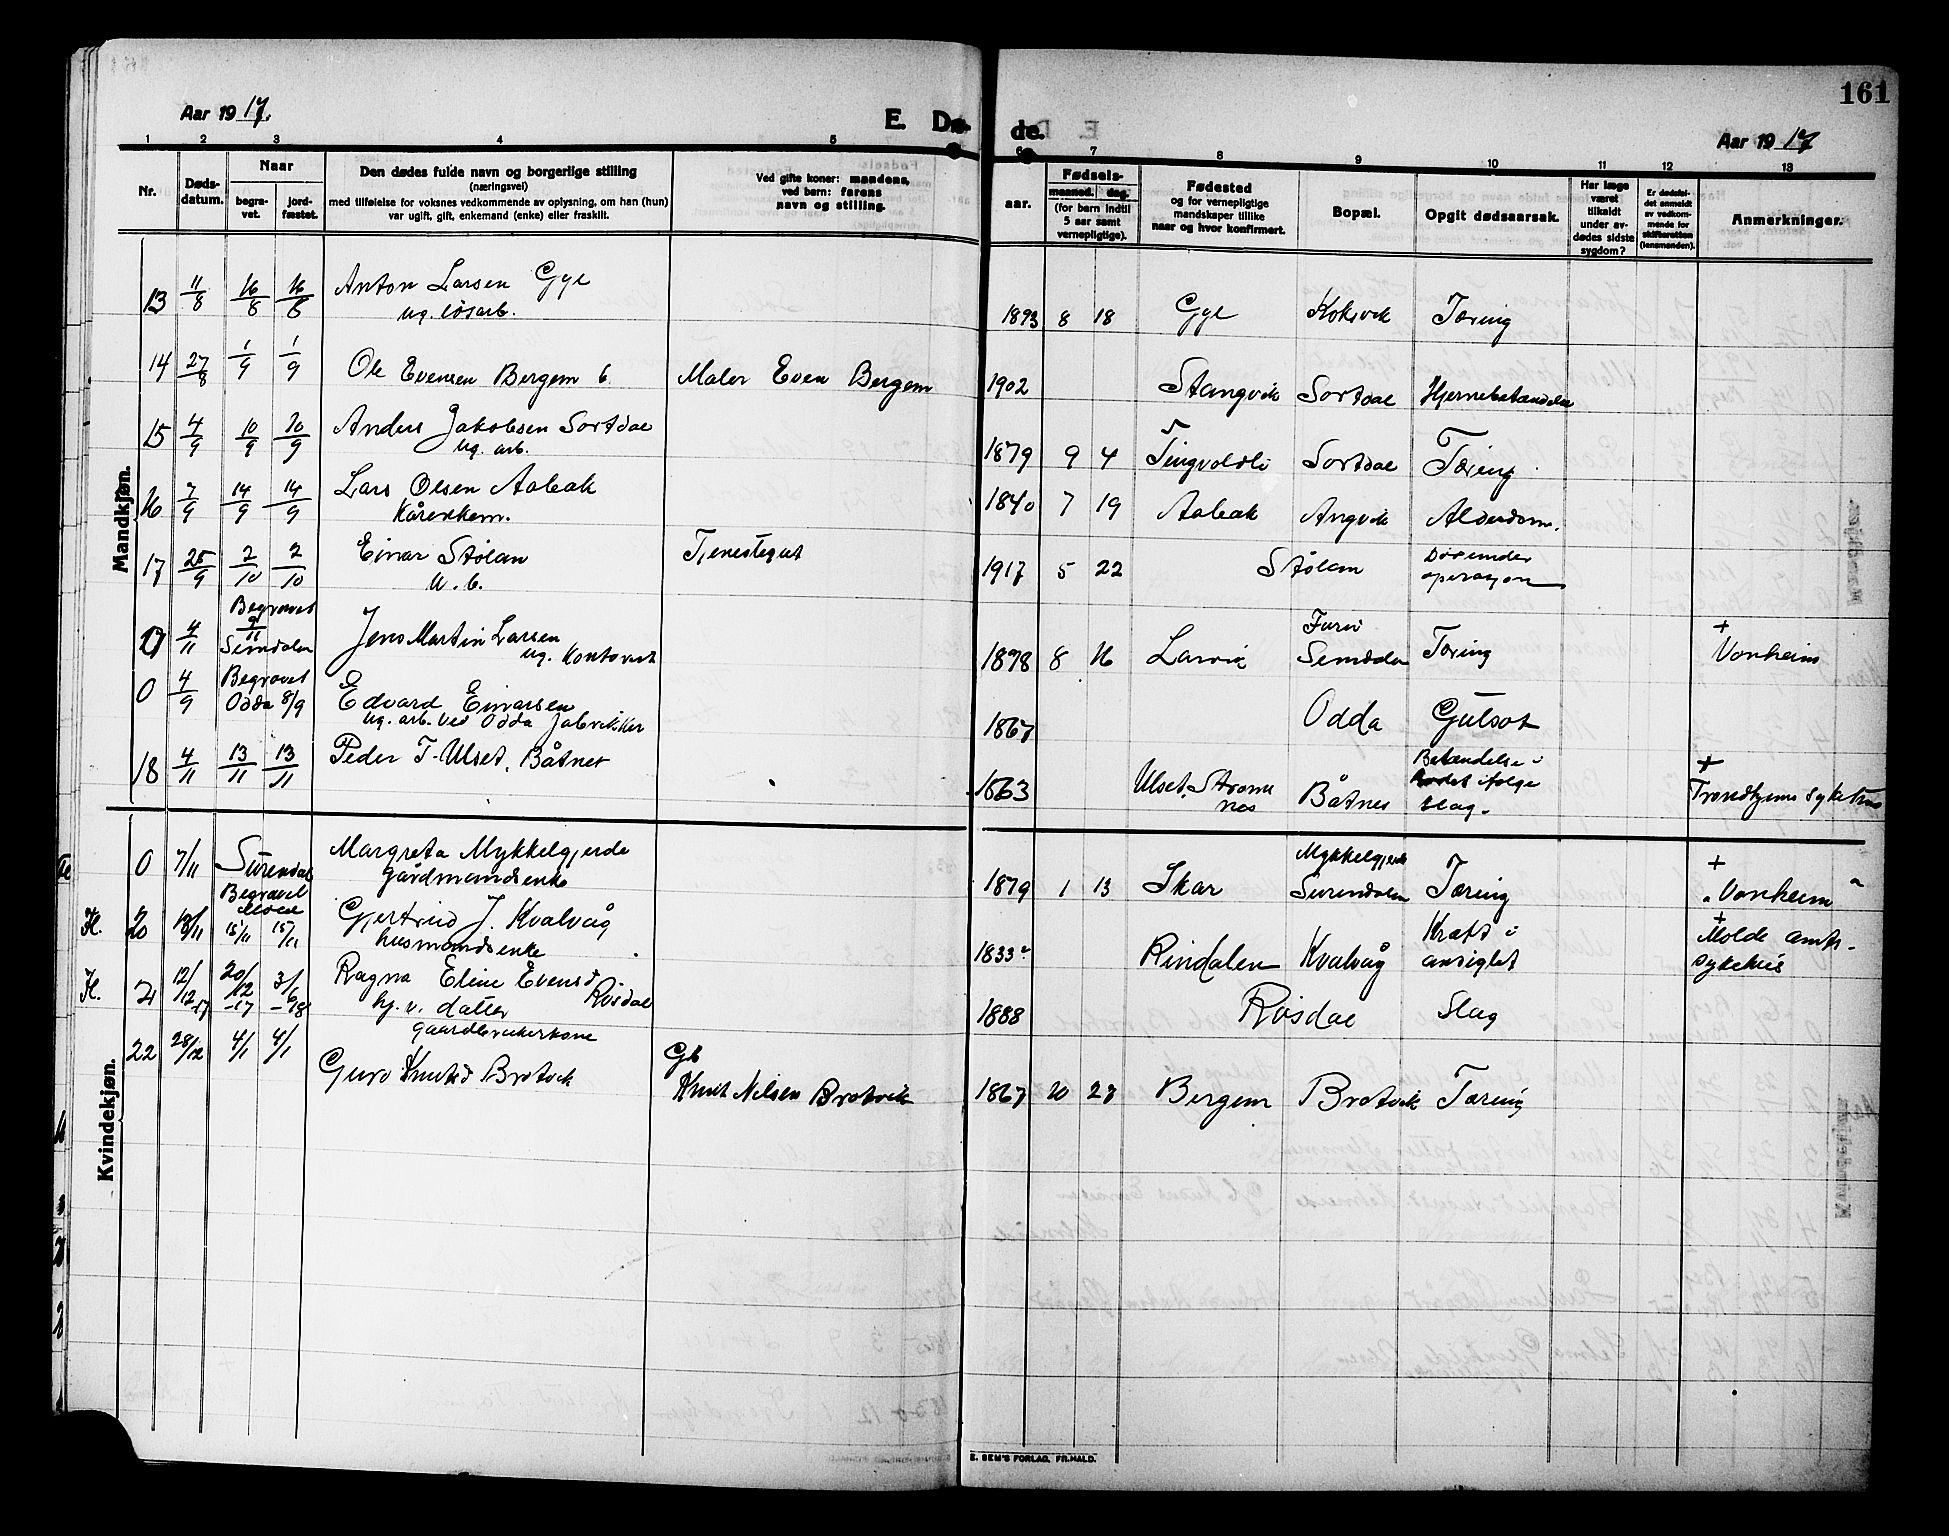 161
Aar 1917.
E. Dø-
de.
Aar 1917
1 2 3 4 5 6 7 8 9 10 11 12 13
Nr.
Døds-
datum.
Naar
begra-
vet.
jord-
fæstet.
Den dødes fulde navn og borgerlige stilling
(næringsvei)
med tilføielse for voksnes vedkommende av oplysning, om han (hun)
var ugift, gift, enkemand (enke) eller fraskilt.
Ved gifte koner: mandens,
ved børn: farens
navn og stilling.
Fødsels-
aar.
maaned. dag.
(for børn indtil
5 aar samt
vernepligtige).
Fødested
og for vernepligtige
mandskaper tillike
naar og hvor konfirmert.
Bopæl.
Opgit dødsaarsak.
Har læge
været
tilkaldt
under av-
dødes sidste
sygdom?
Er dødsfal-
det anmeldt
av vedkom-
mende for
skifteretten
(lensmanden).
Anmerkninger.
Mandkjøn.
13 11/8 16/8 16/8 Anton Larsen Gyl 1893 8 18 Gyl Koksvik Tæring
ug. løsarb.
14 27/8 1/9 1/9 Ole Evensen Bergem Maler Even Bergem 1902 Stangvik Sortdal Hjernebetændelse
15 4/9 10/9 10/9 Anders Jakobsen Sortdal 1879 9 4 Tingvoldli Sortdal Tæring
ug. arb.
16 7/9 14/9 14/9 Lars Olsen Aabak 1840 7 19 Aabak Angvik Alderdom.
Kårenkem.
17 25/9 2/10 2/10 Einar Stølan Tjenestegut 1917 5 22 Stølan Død under
operasjon
u. b.
Begravet
0 4/11 9/11 Jens Martin Larsen 1898 8 16 Larvik Furu Tæring +
Surndalen ug. Kontorist Surndalen Vonheim
0 4/9 Begravet
Odda 8/9 Edvard Einarsen 1867 Odda Gulsot
ug. arb. ved Odda fabrikker
18 4/11 13/11 13/11 Peder T. Ulset, Båtnes 1863 Ulset, Strøms
nes Båtnes Betændelse i
hodet ifølge
slag. +
Trondhjems sykehus
Kvindekjøn.
0 7/11 Surendal Margreta Mykkelgjerde 1879 1 13 Skar Mykkelgjerde
Surendalen Tæring +
"Vonheim"
gårdmandsenke
Begravet
Molde
H. 20 13/11 15/11 15/11 Gjertrud J. Kvalvåg 1833 Rindalen Kvalvåg Kræft i
ansigtet +
Molde amts-
sykehus
husmandsenke
H. 21 12/12 -17 20/12 -17 3/6 -18 Ragna Eline Evensd. Røsdal 1888 Røsdal Slag
hj. v. datter
gaardbrukerkone
22 28/12 4/1 4/1 Guro Knutsd Brotvik Gb
Knut Nilsen Brotvik 1867 10 27 Bergem Brotvik Tæring
E. SEM'S FORLAG, FR.HALD.